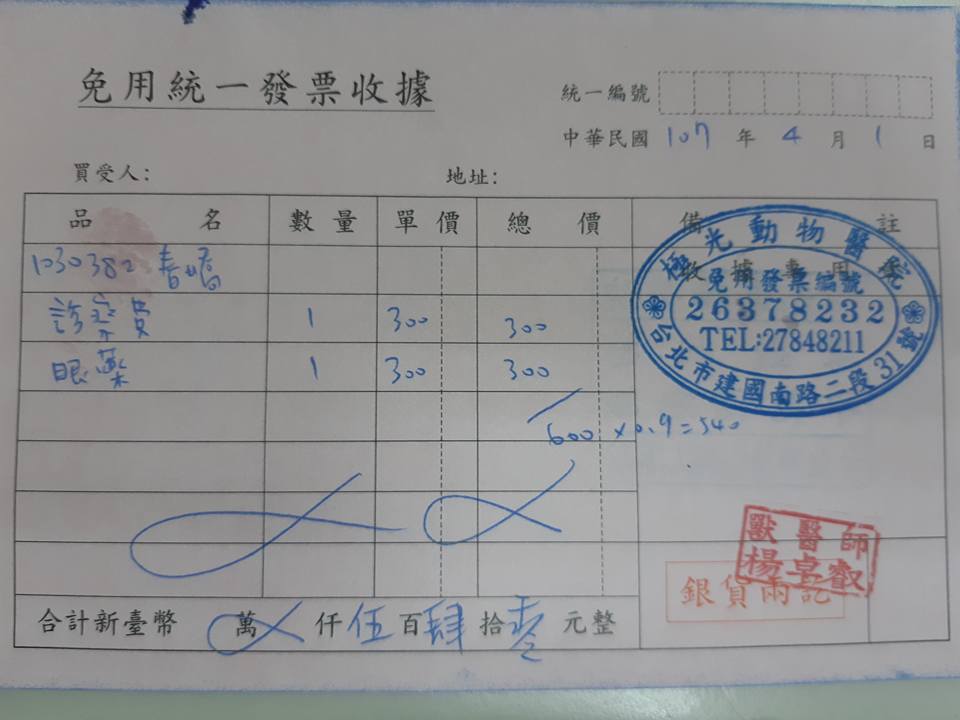 免用統一發票收據
統一編號
中華民國 107 年 4 月 1 日
買受人： 地址：
品 名 數 量 單 價 總 價 備 註
收據專用
1030382 春嬌
診察費 1 300 300
眼藥 1 300 300
600 × 0.9 = 540
極光動物醫院
免用發票編號
26378232
TEL:27848211
台北市建國南路二段31號
獸醫師
楊卓叡
銀貨兩訖
合計新臺幣 萬 仟 伍 百 肆 拾 零 元整